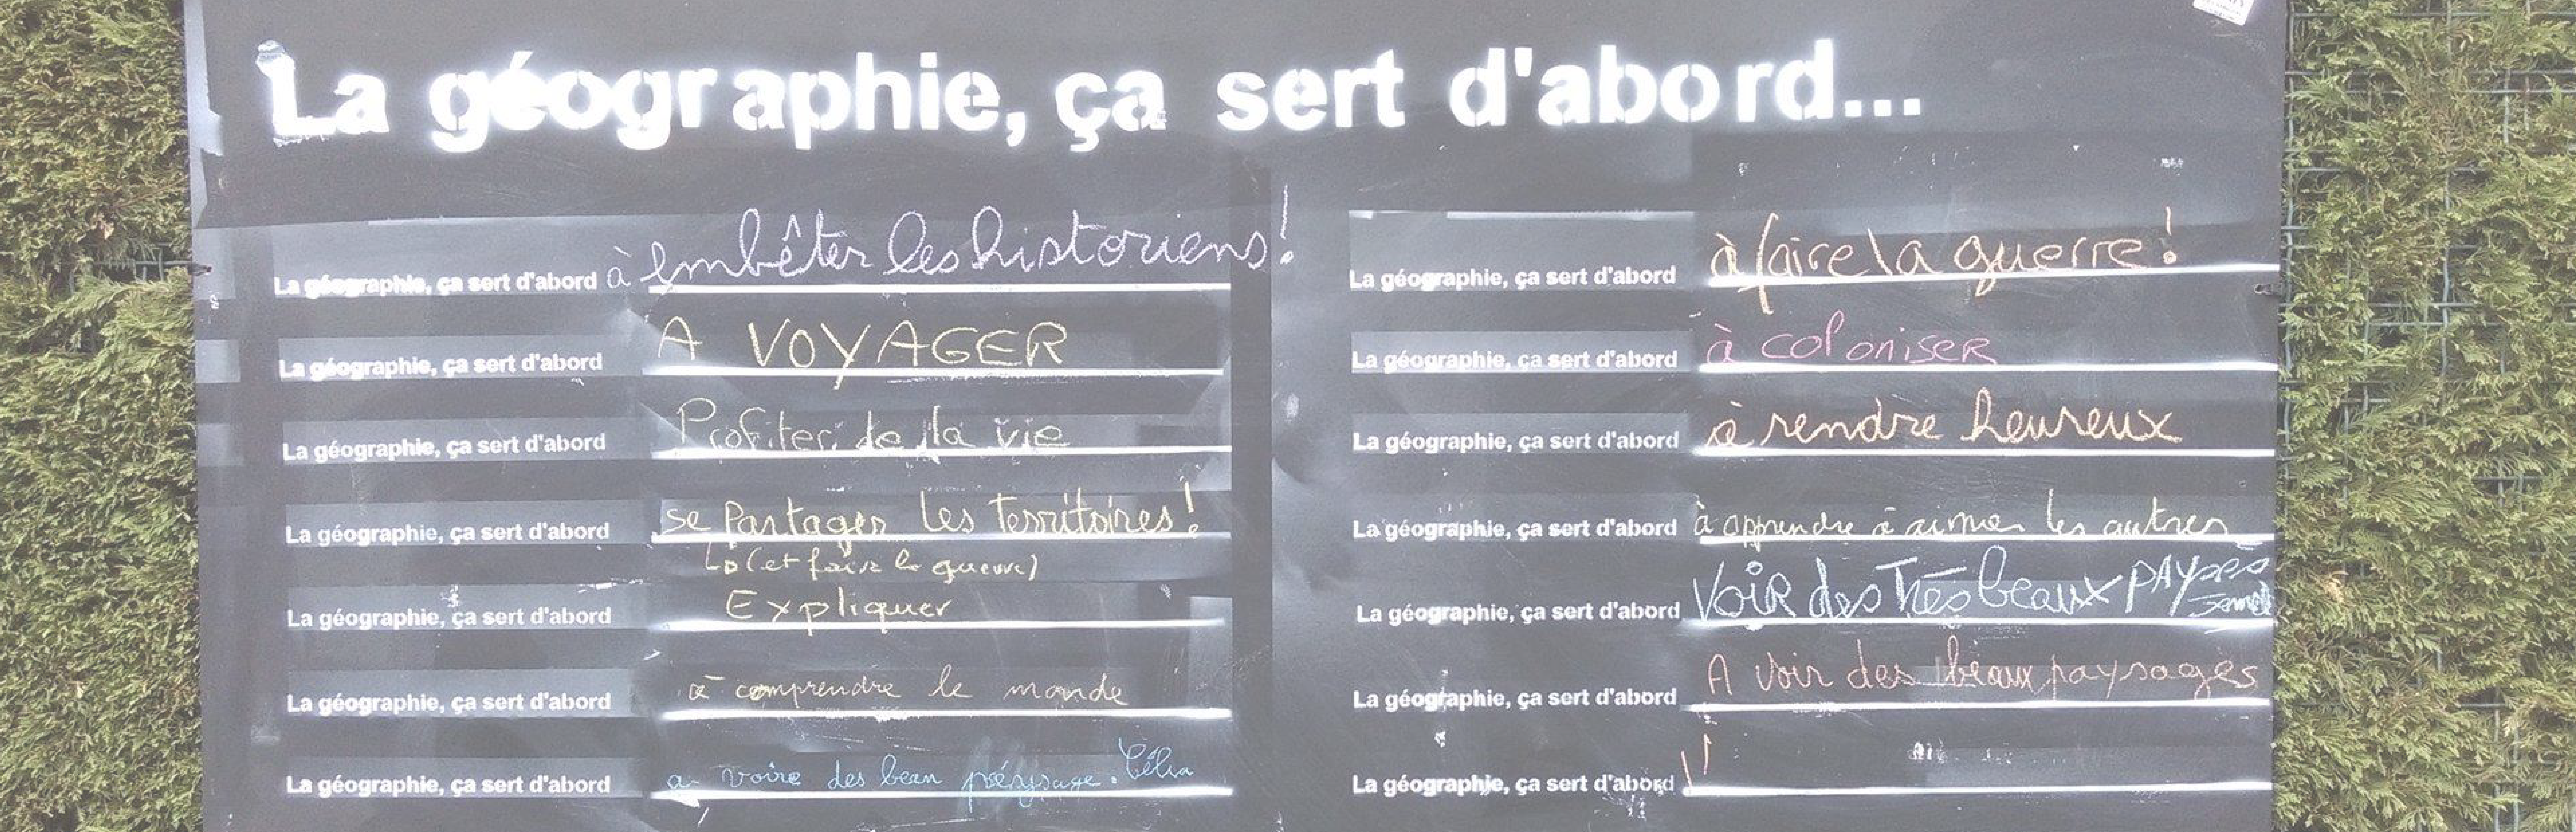 La géographie, ça sert d'abord...
La géographie, ça sert d'abord à embêter les historiens!
La géographie, ça sert d'abord A VOYAGER
La géographie, ça sert d'abord Profiter de la vie
La géographie, ça sert d'abord se Partager les territoires!
↳ (et faire la guerre)
La géographie, ça sert d'abord Expliquer
La géographie, ça sert d'abord à comprendre le monde
La géographie, ça sert d'abord a voire des beau Célia
La géographie, ça sert d'abord à faire la guerre!
La géographie, ça sert d'abord à coloniser
La géographie, ça sert d'abord à rendre heureux
La géographie, ça sert d'abord à apprendre à aimer les autres
La géographie, ça sert d'abord VOIR des Très beaux
La géographie, ça sert d'abord A voir des beaux paysages
La géographie, ça sert d'abord